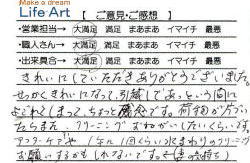 Make a dream
Life Art 【ご意見・ご感想】
・営業担当→ 大満足 満足 まあまあ イマイチ 最悪
・職人さん→ 大満足 満足 まあまあ イマイチ 最悪
・出来具合→ 大満足 満足 まあまあ イマイチ 最悪
きれいにしていただきありがとうございました。
せっかくきれいになって、引越してあっという間に
よごれてしまって、ちょっと残念です。荷物が片づい
たらまた クリーニング おねがいしたいくらいです
アフターケアや 1年に1回くらい水まわりのクリーニング
お願いするかもしれないです。